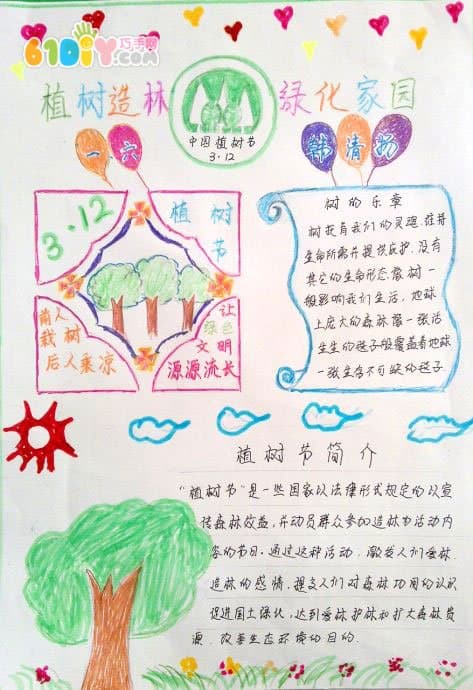 61DIY巧手网
.com
植树造林 绿化家园
中国植树节
3.12
一六
韩清扬
3.12
植树节
前人
栽树
后人乘凉
让
绿色
文明
源源流长
树的乐章
树花有我们的灵魂.在井
生命所需并提供庇护.没有
其它的生命形态像树一
般影响我们生活，地球
上庞大的森林像一张活
生生的毯子般覆盖着地球
一张生存不可缺的毯子
植树节简介
“植树节”是一些国家以法律形式规定的以宣
传森林效益，并动员群众参加造林为活动内
容的节日.通过这种活动，激发人们爱林、
造林的感情，提高人们对森林功用的认识
促进国土绿化，达到爱林护林和扩大森林资
源、改善生态环境的目的.